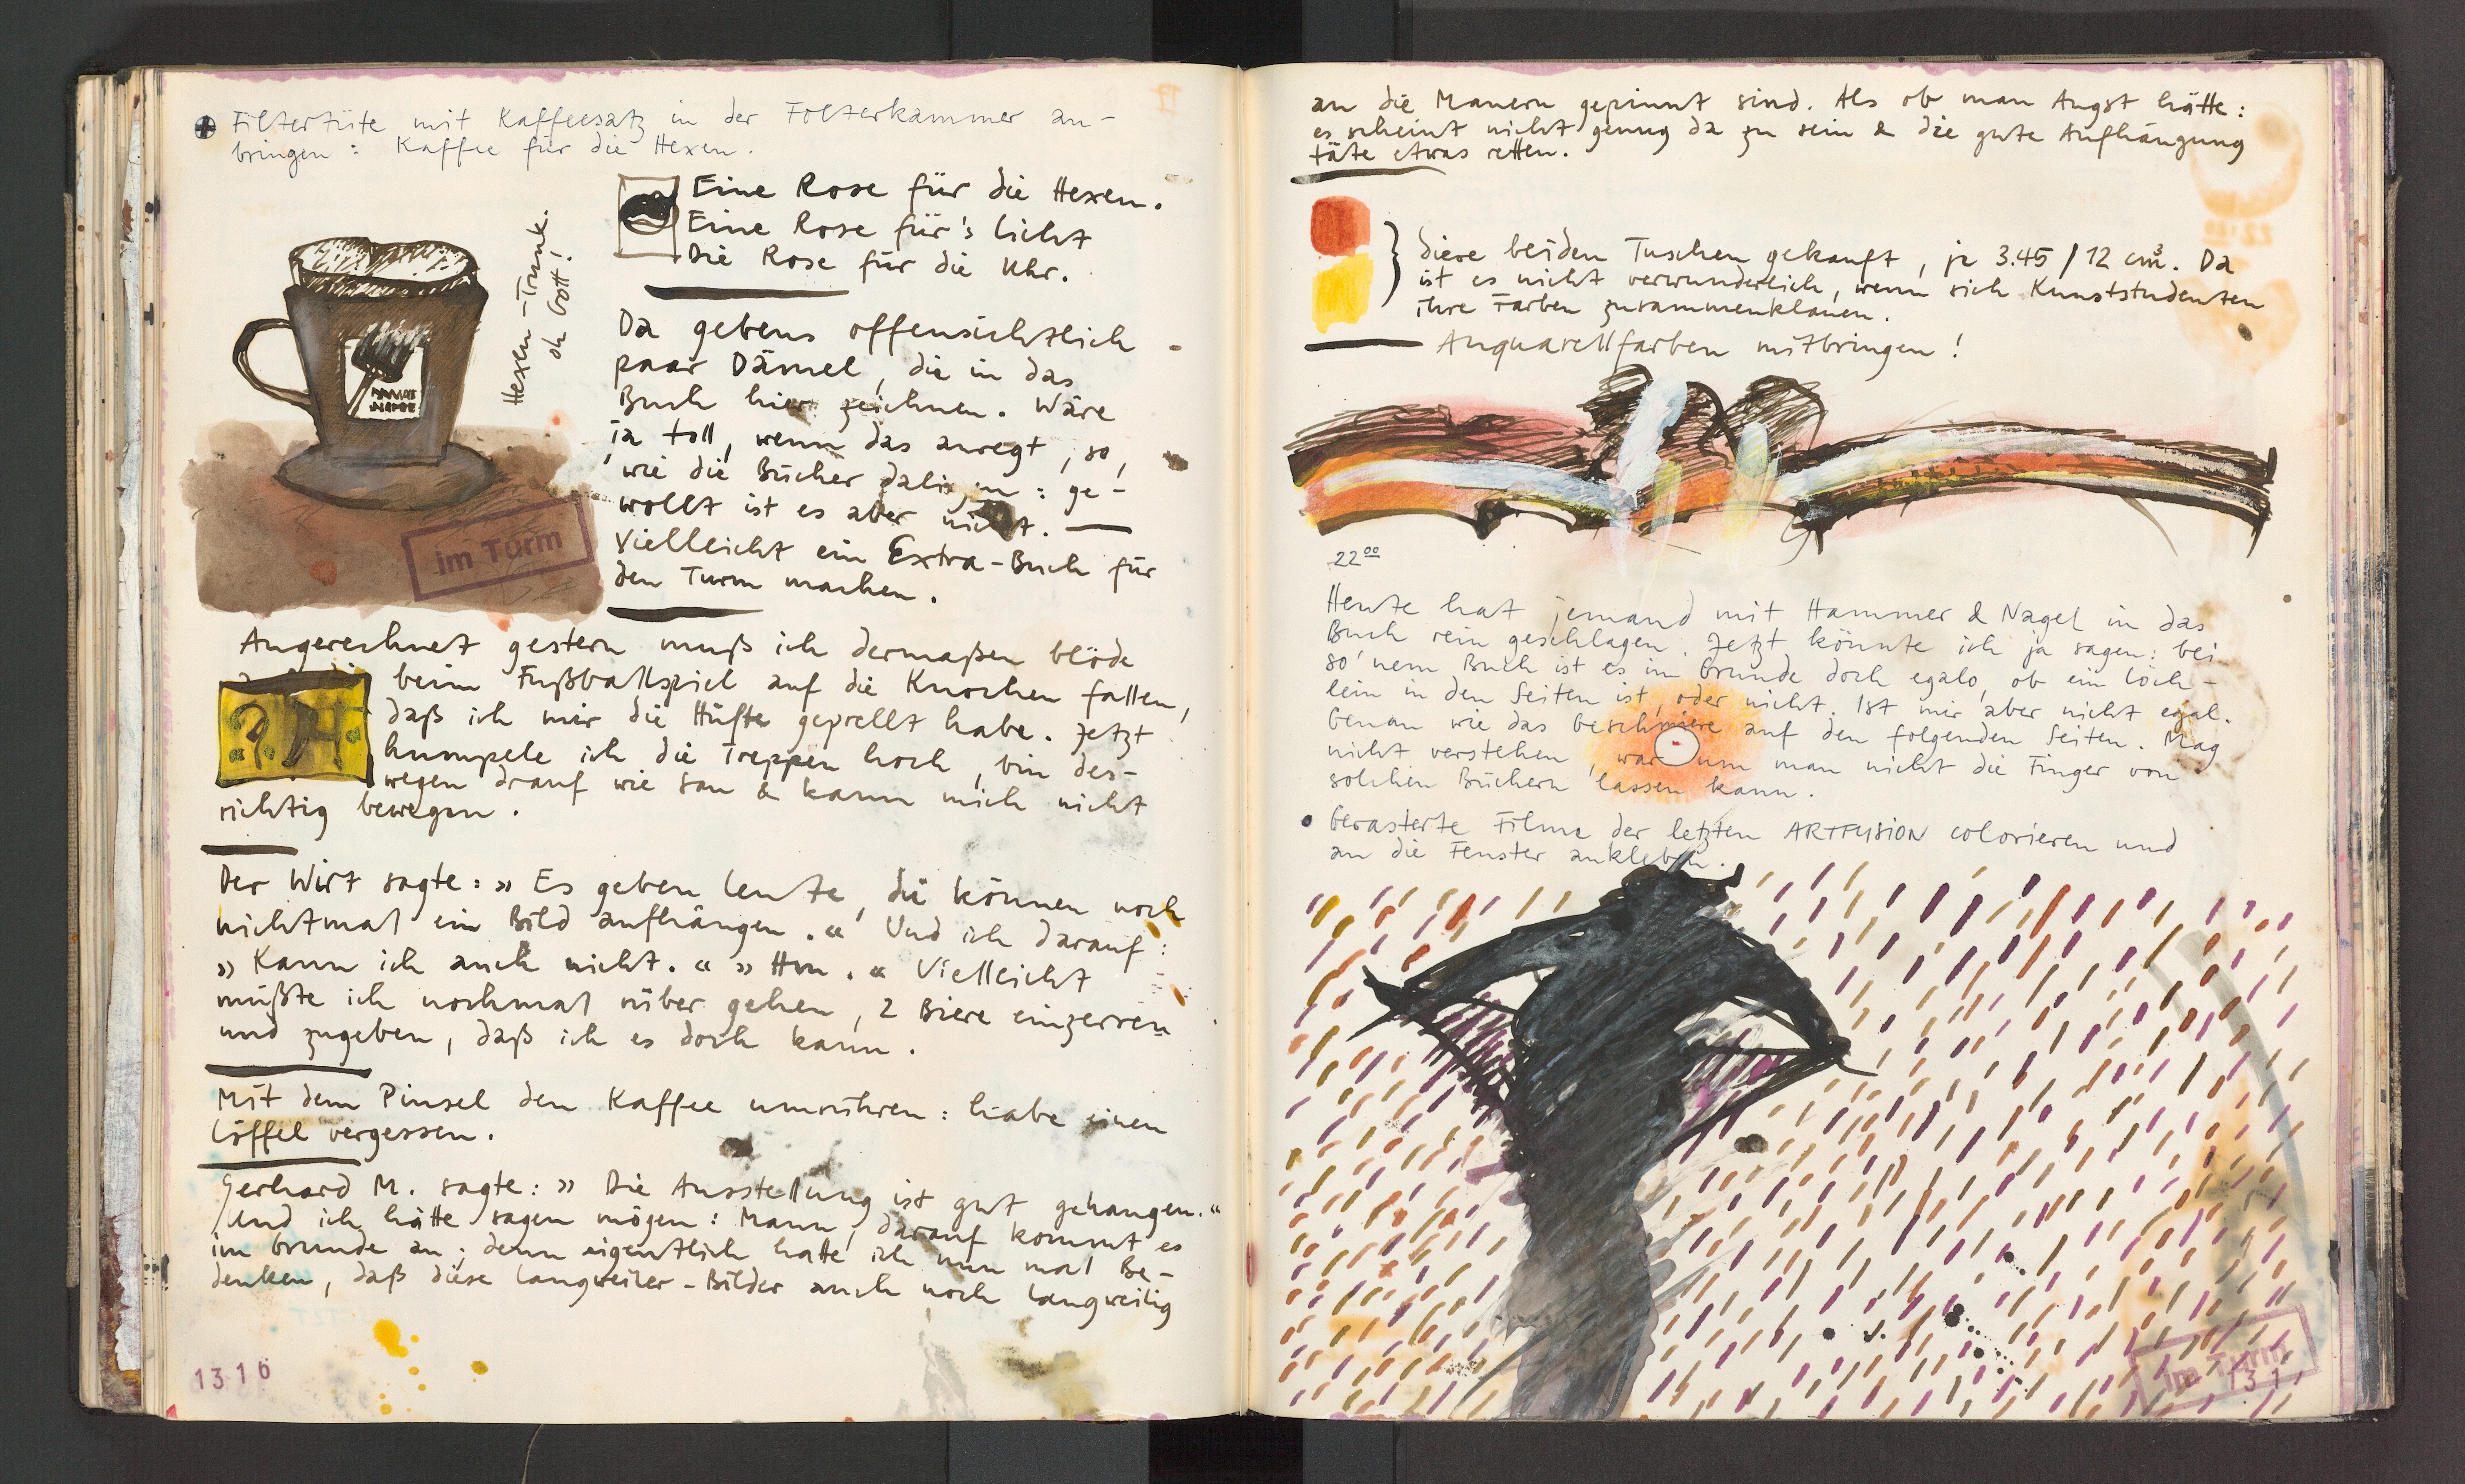 Filtertüte mit Kaffeesatz in der Folterkammer an-
bringen: Kaffee für die Hexen.
Eine Rose für die Hexen.
Eine Rose für's Licht
Die Rose für die Uhr.
Hexen-Trunk.
oh Gott!
im Turm
Da gebens offensichtlich
paar Dämel, die in das
Buch hier zeichnen. Wäre
ja toll, wenn das anregt, so,
wie die Bücher daliegen: ge-
wollt ist es aber nicht.
Vielleicht ein Extra-Buch für
den Turm machen.
Ausgerechnet gestern muß ich dermaßen blöde
beim Fußballspiel auf die Knochen fallen,
daß ich mir die Hüfte geprellt habe. Jetzt
humpele ich die Treppen hoch, bin des-
wegen drauf wie Sau & kann mich nicht
richtig bewegen.
Der Wirt sagte: » Es geben Leute, die können noch
nichtmal ein Bild aufhängen. « Und ich darauf:
» Kann ich auch nicht. « » Hm. « Vielleicht
müßte ich nochmal rüber gehen, 2 Biere einzerren
und zugeben, daß ich es doch kann.
Mit dem Pinsel den Kaffee umrühren: habe einen
Löffel vergessen.
Gerhard M. sagte: » Die Ausstellung ist gut gehangen. «
Und ich hätte sagen mögen: Mann, darauf kommt es
im Grunde an; denn eigentlich hatte ich nun mal Be-
denken, daß diese Langweiler-Bilder auch noch langweilig
1316
an die Mauern gepinnt sind. Als ob man Angst hätte:
es scheint nicht genug da zu sein & die gute Aufhängung
täte etwas retten.
diese beiden Tuschen gekauft, je 3.45 / 12 cm³. Da
ist es nicht verwunderlich, wenn sich Kunststudenten
ihre Farben zusammenklauen.
Aquarellfarben mitbringen!
22⁰⁰
Heute hat jemand mit Hammer & Nagel in das
Buch rein geschlagen. Jetzt könnte ich ja sagen: bei
so'nem Buch ist es im Grunde doch egalo, ob ein Löch-
lein in den Seiten ist, oder nicht. Ist mir aber nicht egal.
Genau wie das Geschmiere auf den folgenden Seiten. Mag
nicht verstehen, warum man nicht die Finger von
solchen Büchern lassen kann.
Gerasterte Filme der letzten ARTFUSION colorieren und
an die Fenster ankleben.
im Turm